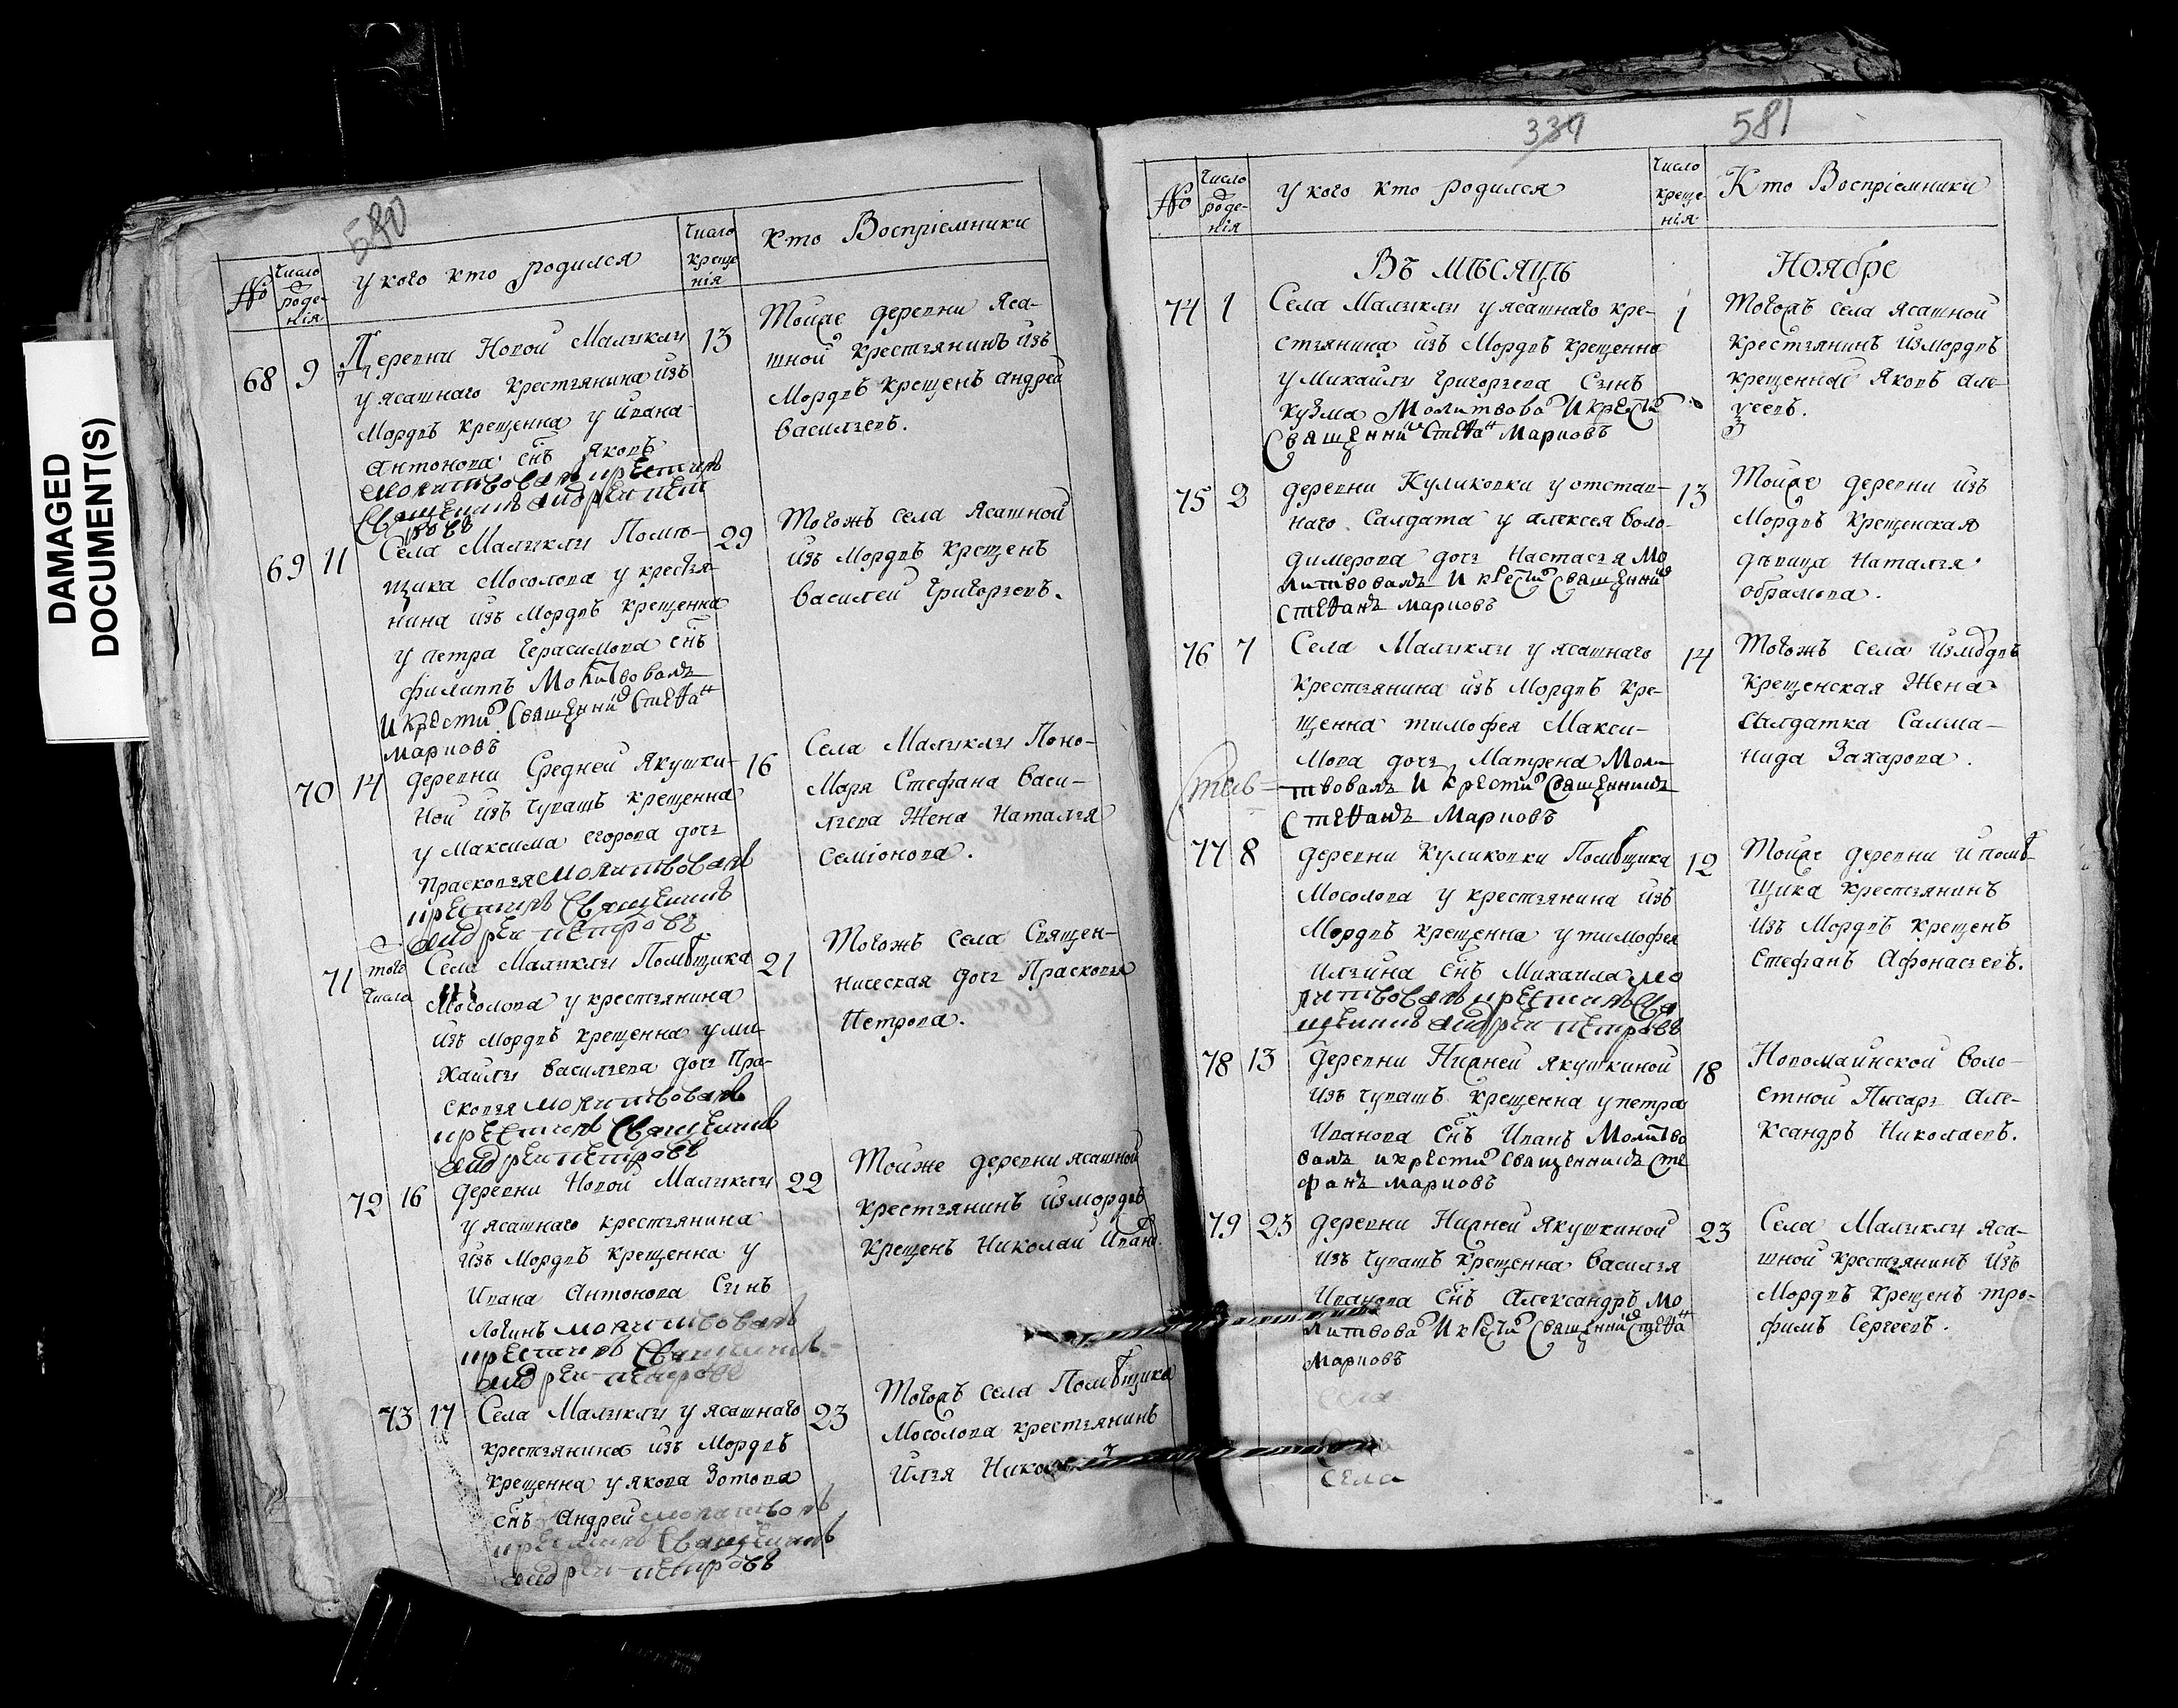 DAMAGED
DOCUMENT(S)
580
№
Число
роде-
нія
у кого кто родился
Число
креще
нія
Кто Воспріемники
68 9 Деревни Новой Малыклы 13
у ясашнаго крестьянина изъ
Мордвъ крещенна у ивана
антонова снъ яковъ
молитвовалъ и крестилъ
священникъ андреи пет
ровъ
Тойже деревни яса-
шной крестьянинъ изъ
Мордвъ крещенъ андрей
васильевъ.
69 11 Села Малыклы Помѣ- 29
щика Мосолова у крестья-
нина изъ Мордвъ крещенна
у петра Герасимова снъ
филиппъ Молитвовалъ
и крести священни стефа
Марновъ
Тогожъ села Ясашной
изъ Мордвъ крещенъ
василей Григорьевъ.
70 14 деревни Средней Якушки- 16
ной изъ чувашъ крещенна
у Максима егорова дочь
Прасковья молитвовалъ
и крестилъ священникъ
андреи петровъ
Села Малыклы Поно-
маря Стефана Васи-
льева Жена Наталья
Семіонова.
71 того числа Села Малыклы Помѣщика 21
Мосолова у крестьянина
изъ Мордвъ крещенна у ми-
хайлы васильева дочь Пра-
сковья молитвовалъ
и крестилъ священникъ
андреи петровъ
Тогожъ села Священ-
ническая дочь Прасковья
Петрова.
72 16 деревни Новой Малыклы 22
у ясашнаго крестьянина
изъ Мордвъ крещенна у
Ивана Антонова Сынъ
Логинъ молитвовалъ
и крестилъ священникъ
андреи петровъ
Тойже деревни ясашной
крестьянинъ измордвъ
крещенъ Николай Ивано.
73 17 Села Малыклы у ясашнаго 23
крестьянина изъ Мордвъ
крещенна у якова Зотова
снъ Андрей молитвовалъ
и крестилъ священникъ
андреи петровъ
Тогожъ села Помѣщика
Мосолова крестьянинъ
Илья Никола
581
№
Число
роде-
нія
у кого кто родился
Число
креще
нія
Кто Воспріемники
Въ мѣсяцѣ Ноябре
74 1 Села Малыклы у ясашнаго кре- 1
стьянина изъ Мордвъ крещенна
у Михайлы Григорьева Сынъ
кузма Молитвова и крести
священни стефа Марновъ
Тогожъ села ясашной
крестьянинъ измордвъ
крещенной Яковъ але-
ѯеевъ.
75 2 деревни Куликовки у отстав- 13
наго Салдата у алексея воло-
димерова дочь Настасья Мо
литвовалъ и крести священни
стефанъ марновъ
Тойже деревни изъ
Мордвъ крещенская
дѣвица Наталья
обрамова.
76 7 Села Малыклы у ясашнаго 14
крестьянина изъ Мордвъ кре-
щенна тимофея Макси-
мова дочь Матрена Моли-
твовалъ и крести священникъ
стефанъ Марновъ
Тогожъ села измордвъ
крещенская Жена
салдатка Салма-
нида Захарова.
77 8 деревни Куликовки Помѣщика 12
Мосолова у крестьянина изъ
Мордвъ крещенна у тимофея
ильина снъ Михаила мо
литвовалъ и крестилъ свя
щенникъ андреи петровъ
Тойже деревни и помѣ-
щика крестьянинъ
изъ Мордвъ крещенъ
Стефанъ Афонасьевъ.
78 13 деревни Нижней якушкиной 18
изъ чувашъ крещенна у петра
Иванова снъ Иванъ Молитво
валъ и крести священникъ сте
фанъ марновъ
Новомаинской воло-
стной Писарь Але-
ксандръ Николаевъ.
79 23 деревни Нижней якушкиной 23
изъ чувашъ крещенна Василья
Иванова снъ Александръ мо
литвова и крести священни стефа
Марновъ
Села Малыклы яса-
шной крестьянинъ изъ
Мордвъ крещенъ тро-
фимъ Сергеевъ.
села
села